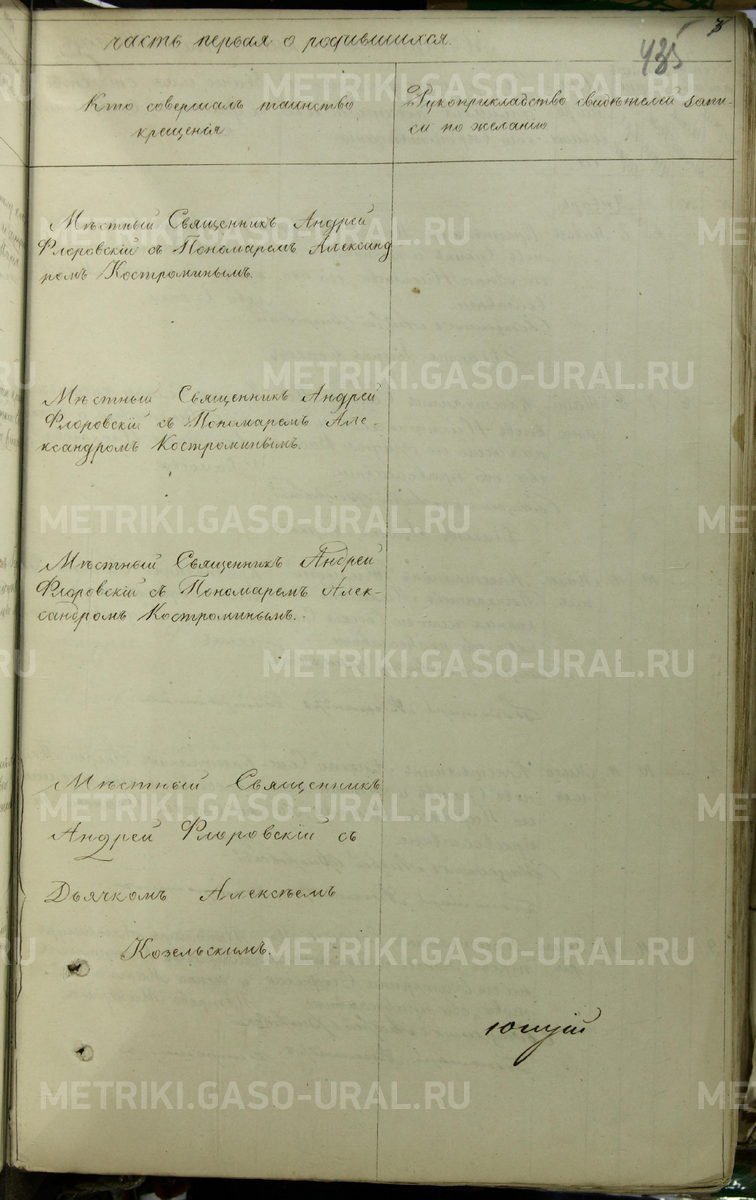 часть первая о родившихся.
435
Кто совершалъ таинство
крещенія
Рукоприкладство свидѣтелей запи-
си по желанію
Мѣстный Священникъ Андрей
Флоровскій съ Пономаремъ Александ
ромъ Костроминымъ.
Мѣстный Священникъ Андрей
Флоровскій съ Пономаремъ Але-
ксандромъ Костроминымъ.
Мѣстный Священникъ Андрей
Флоровскій съ Пономаремъ Алек-
сандромъ Костроминымъ.
Мѣстный Священникъ
Андрей Флоровскій съ
Дьячкомъ Алексѣемъ
Козельскимъ.
METRIKI.GASO-URAL.RU